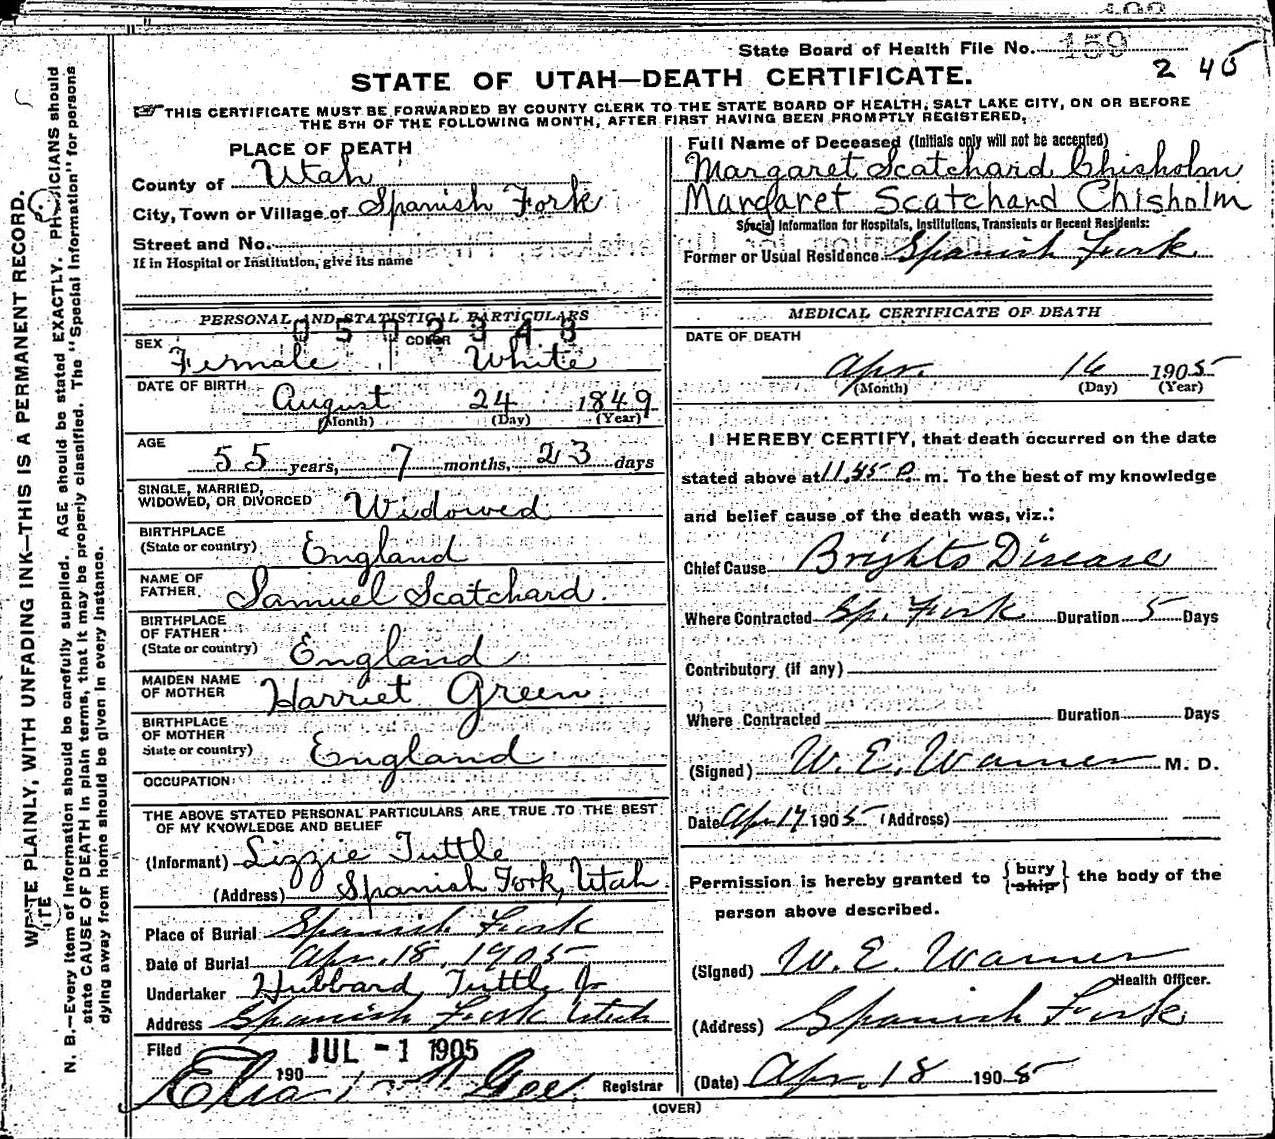 State Board of Health File No. 159
2 45
STATE OF UTAH—DEATH CERTIFICATE.
THIS CERTIFICATE MUST BE FORWARDED BY COUNTY CLERK TO THE STATE BOARD OF HEALTH, SALT LAKE CITY, ON OR BEFORE
THE 5TH OF THE FOLLOWING MONTH, AFTER FIRST HAVING BEEN PROMPTLY REGISTERED.
PLACE OF DEATH
County of Utah
City, Town or Village of Spanish Fork
Street and No.
If in Hospital or Institution, give its name
Full Name of Deceased (Initials only will not be accepted)
Margaret Scatchard Chisholm
Margaret Scatchard Chisholm
Special Information for Hospitals, Institutions, Transients or Recent Residents:
Former or Usual Residence Spanish Fork
PERSONAL AND STATISTICAL PARTICULARS
0502348
SEX Female COLOR White
DATE OF BIRTH
August 24 1849
(Month) (Day) (Year)
AGE
55 years, 7 months, 23 days
SINGLE, MARRIED,
WIDOWED, OR DIVORCED Widowed
BIRTHPLACE
(State or country) England
NAME OF
FATHER Samuel Scatchard.
BIRTHPLACE
OF FATHER
(State or country) England
MAIDEN NAME
OF MOTHER Harriet Green
BIRTHPLACE
OF MOTHER
State or country) England
OCCUPATION
THE ABOVE STATED PERSONAL PARTICULARS ARE TRUE TO THE BEST
OF MY KNOWLEDGE AND BELIEF
(Informant) Lizzie Tuttle
(Address) Spanish Fork, Utah
Place of Burial Spanish Fork
Date of Burial Apr. 18, 1905
Undertaker Hubbard Tuttle Jr
Address Spanish Fork Utah
Filed JUL -1 1905
190
Registrar
MEDICAL CERTIFICATE OF DEATH
DATE OF DEATH
Apr. 16 1905
(Month) (Day) (Year)
I HEREBY CERTIFY, that death occurred on the date
stated above at 11.45 P. m. To the best of my knowledge
and belief cause of the death was, viz.:
Chief Cause Brights Disease
Where Contracted Sp. Fork Duration 5 Days
Contributory (if any)
Where Contracted Duration Days
(Signed) W. E. Warner M. D.
Date Apr 17 1905 (Address)
Permission is hereby granted to {bury
ship} the body of the
person above described.
(Signed) W. E. Warner
Health Officer.
(Address) Spanish Fork
(Date) Apr. 18 1905
(OVER)
WRITE PLAINLY, WITH UNFADING INK—THIS IS A PERMANENT RECORD.
N. B.—Every item of information should be carefully supplied. AGE should be stated EXACTLY. PHYSICIANS should
state CAUSE OF DEATH in plain terms, that it may be properly classified. The "Special Information" for persons
dying away from home should be given in every instance.